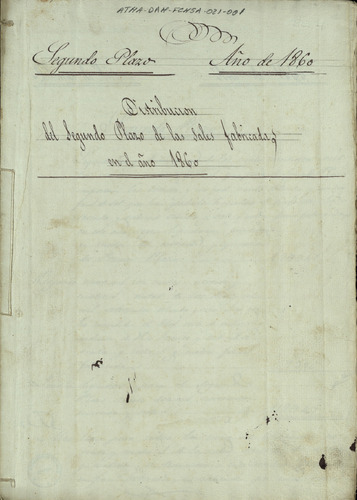 ATHA-DAH-FCNSA-021-001
Segundo Plazo Año de 1860
Distribucion
del Segundo Plazo de las Sales fabricadas
en el año 1860